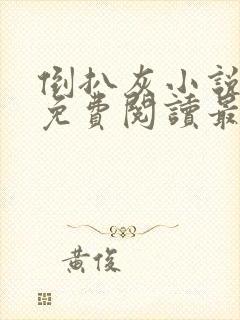 倒扒灰小說
免費閱讀最
黃俊